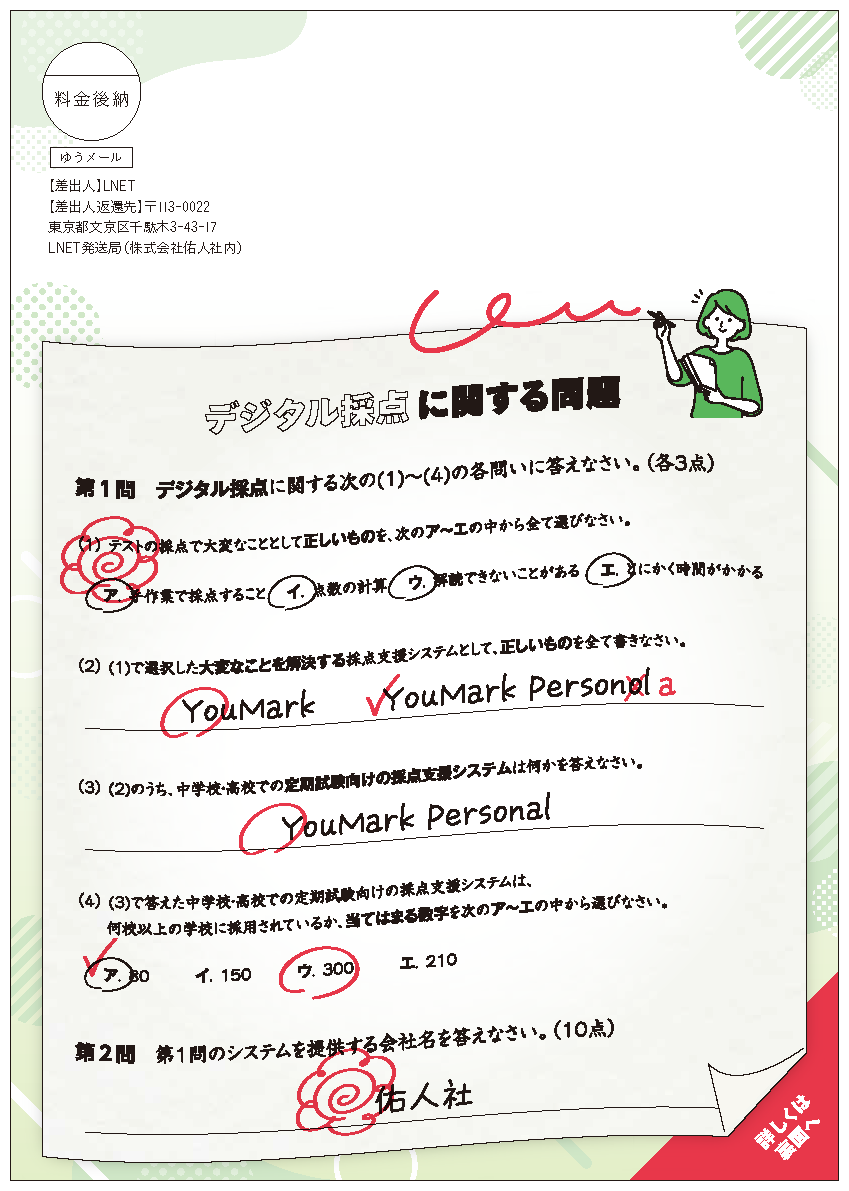 料金後納
ゆうメール
【差出人】LNET
【差出人返還先】〒113-0022
東京都文京区千駄木3-43-17
LNET発送局（株式会社佑人社内）
デジタル採点に関する問題
第1問　デジタル採点に関する次の(1)～(4)の各問いに答えなさい。（各3点）
(1) テストの採点で大変なこととして正しいものを、次のア～エの中から全て選びなさい。
ア. 手作業で採点すること　イ. 点数の計算　ウ. 解読できないことがある　エ. とにかく時間がかかる
(2) (1)で選択した大変なことを解決する採点支援システムとして、正しいものを全て書きなさい。
YouMark　YouMark Personol a
(3) (2)のうち、中学校・高校での定期試験向けの採点支援システムは何かを答えなさい。
YouMark Personal
(4) (3)で答えた中学校・高校での定期試験向けの採点支援システムは、
何校以上の学校に採用されているか、当てはまる数字を次のア～エの中から選びなさい。
ア. 80　イ. 150　ウ. 300　エ. 210
第2問　第1問のシステムを提供する会社名を答えなさい。（10点）
佑人社
詳しくは
裏面へ